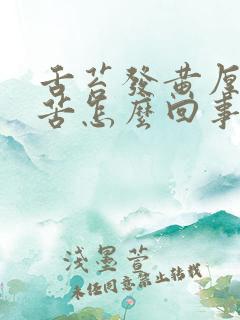 舌苔發黃厚
苦怎麼回事
淺墨萱
未经同意禁止转载